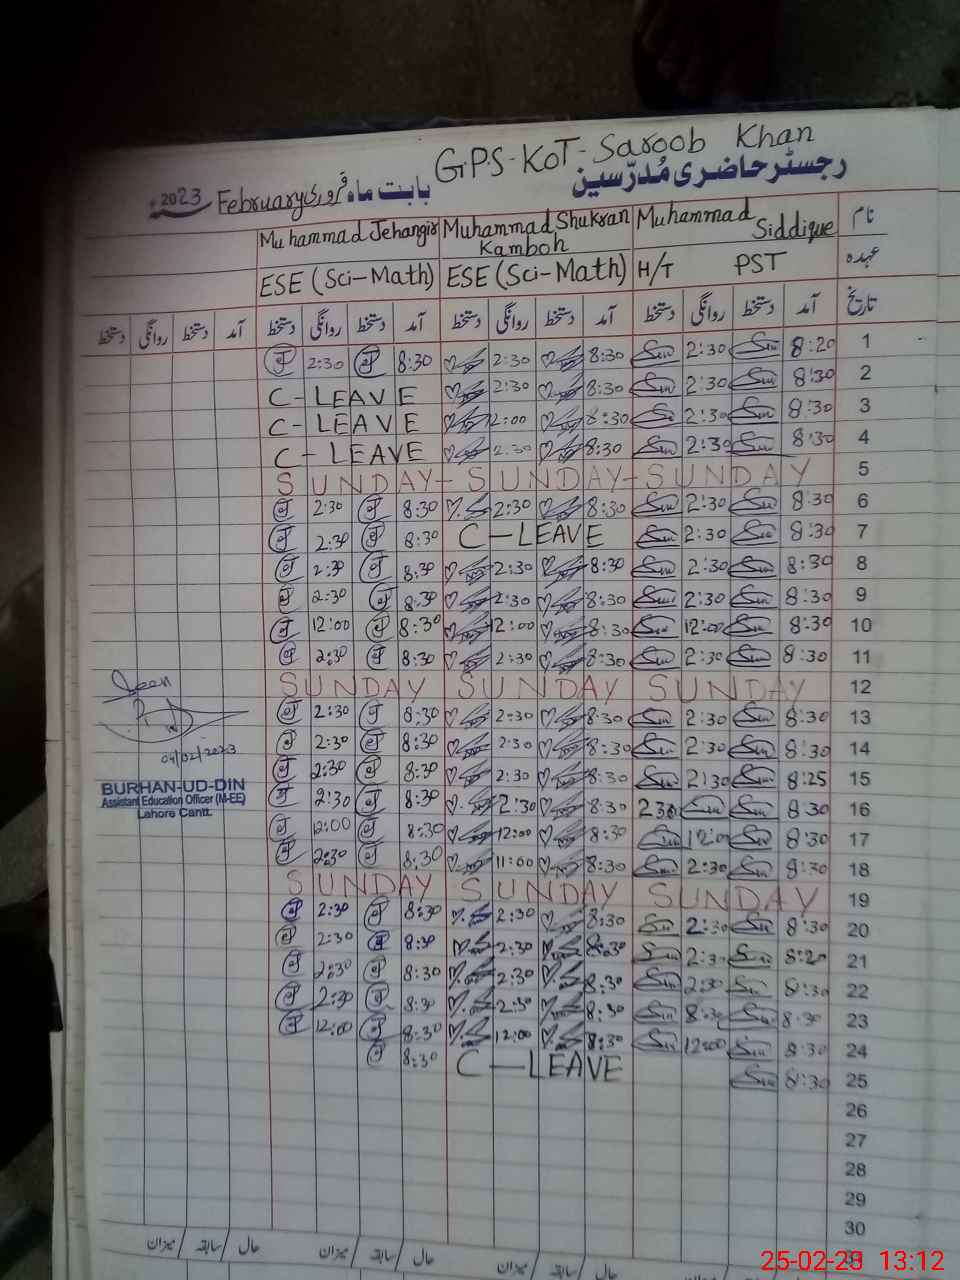 G.P.S - KOT - Saroob Khan
رجسٹر حاضری مُدرّسین
بابت ماہ فروری February 2023
نام Muhammad Siddique Muhammad Shukran Kamboh Muhammad Jehangir
عہدہ H/T PST ESE (Sci-Math) ESE (Sci-Math)
تاریخ آمد دستخط روانگی دستخط آمد دستخط روانگی دستخط آمد دستخط روانگی دستخط آمد دستخط روانگی دستخط
1 8:20 2:30 8:30 2:30 8:30 2:30
2 8:30 2:30 8:30 2:30 C - LEAVE
3 8:30 2:30 8:30 2:00 C - LEAVE
4 8:30 2:30 8:30 2:30 C - LEAVE
5 SUNDAY - SUNDAY - SUNDAY
6 8:30 2:30 8:30 2:30 8:30 2:30
7 8:30 2:30 C - LEAVE 8:30 2:30
8 8:30 2:30 8:30 2:30 8:30 2:30
9 8:30 2:30 8:30 2:30 8:30 2:30
10 8:30 12:00 8:30 12:00 8:30 12:00
11 8:30 2:30 8:30 2:30 8:30 2:30
12 SUNDAY SUNDAY SUNDAY
13 8:30 2:30 8:30 2:30 8:30 2:30
14 8:30 2:30 8:30 2:30 8:30 2:30
15 8:25 2:30 8:30 2:30 8:30 2:30
16 8:30 2:30 8:30 2:30 8:30 2:30
17 8:30 12:00 8:30 12:00 8:30 12:00
18 8:30 2:30 8:30 11:00 8:30 2:30
19 SUNDAY SUNDAY SUNDAY
20 8:30 2:30 8:30 2:30 8:30 2:30
21 8:20 2:30 8:30 2:30 8:30 2:30
22 8:30 2:30 8:30 2:30 8:30 2:30
23 8:30 8:30 8:30 2:30 8:30 2:30
24 8:30 12:00 8:30 12:00 8:30 12:00
25 8:30 C - LEAVE 8:30
26
27
28
29
30
31
Seen
04/02/2023
BURHAN-UD-DIN
Assistant Education Officer (M-EE)
Lahore Cantt.
حال سابقہ میزان حال سابقہ میزان حال سابقہ میزان
25-02-23 13:12